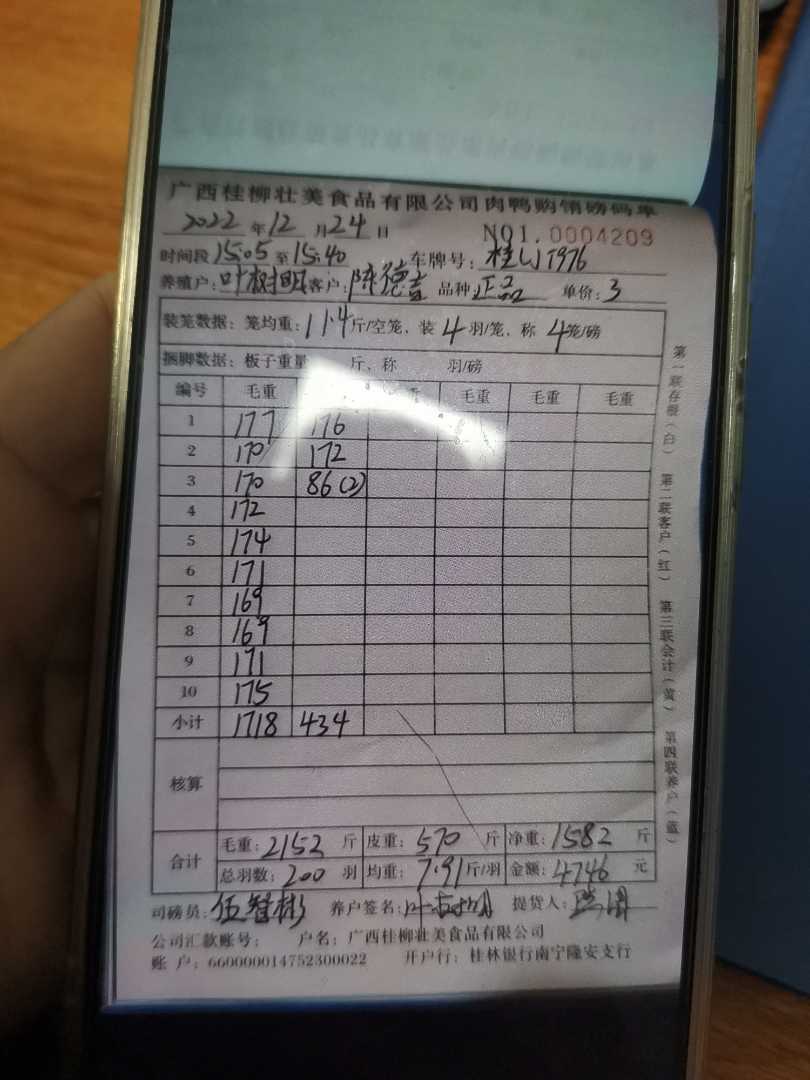 广西桂柳壮美食品有限公司肉鸭购销磅码单
2022 年 12 月 24 日 NO1.0004209
时间段 15:05 至 15:40 车牌号: 桂 J1976
养殖户: 叶树明 客户: 陈德吉 品种 正品 单价: 3
装笼数据: 笼均重: 11.4 斤/空笼、装 4 羽/笼、称 4 笼/磅
捆脚数据: 板子重量 斤、称 羽/磅
编号 毛重 重 毛重 毛重 毛重
1 177 176
2 170 172
3 170 86(2)
4 172
5 174
6 171
7 169
8 169
9 171
10 175
小计 1718 434
核算
合计 毛重: 2152 斤 皮重: 570 斤 净重: 1582 斤
总羽数: 200 羽 均重: 7.91 斤/羽 金额: 4746 元
司磅员: 伍智彬 养户签名: 叶树明 提货人:
公司汇款账号: 户名: 广西桂柳壮美食品有限公司
账 户: 660000014752300022 开户行: 桂林银行南宁隆安支行
第一联存根(白) 第二联客户(红) 第三联会计(黄) 第四联养户(蓝)